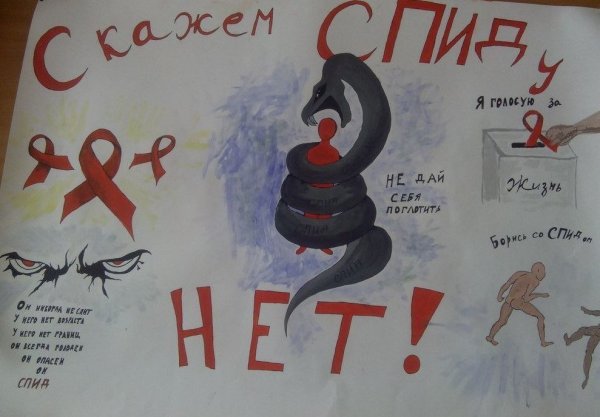 Скажем СПИДу
НЕТ!
Я голосую за
Жизнь
НЕ ДАЙ
СЕБЯ
ПОГЛОТИТЬ
СПИД
СПИД
СПИД
Борись со СПИДом
Он никогда не спит
У него нет возраста
У него нет границ
он всегда голоден
он опасен
он
СПИД